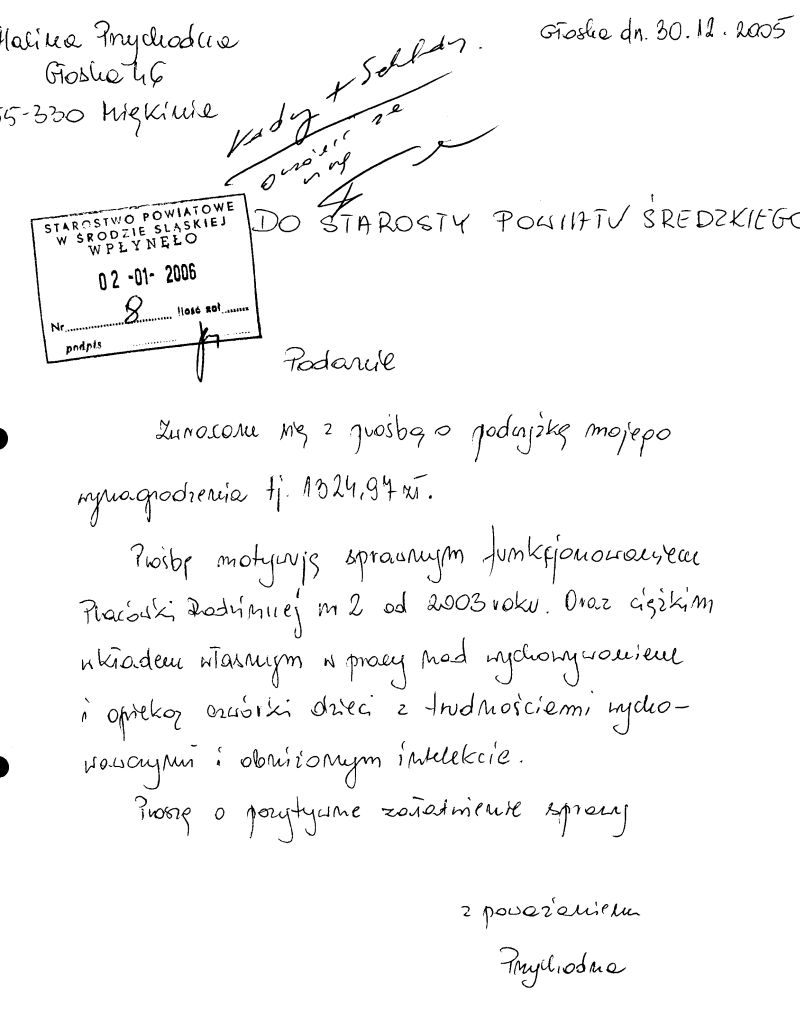 Halina Przychodna
Głoska dn. 30.12.2005
Głoska 46
55-330 Miękinia
Kadry +
STAROSTWO POWIATOWE
W ŚRODZIE ŚLĄSKIEJ
WPŁYNĘŁO
02 -01- 2006
Nr 8 Ilość zał.
podpis
DO STAROSTY POWIATU ŚREDZKIEGO
Podanie
Zwracam się z prośbą o podwyżkę mojego
wynagrodzenia tj. 1324,97 zł.
Prośbę motywuję sprawnym funkcjonowaniem
Placówki Rodzinnej nr 2 od 2003 roku. Oraz ciężkim
wkładem własnym w pracy nad wychowywaniem
i opieką czwórki dzieci z trudnościami wycho-
wawczymi i obniżonym intelekcie.
Proszę o pozytywne załatwienie sprawy
z poważaniem
Przychodna